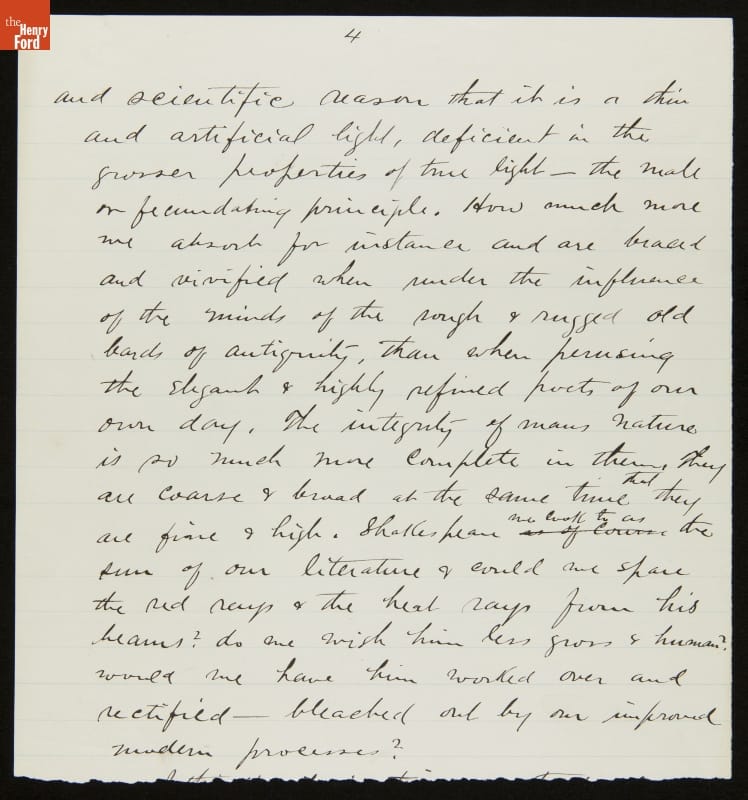 the
Henry
Ford
4
and scientific reason that it is a thin
and artificial light, deficient in the
grosser properties of true light — the male
or fecundating principle. How much more
we absorb for instance and are braced
and vivified when under the influence
of the minds of the rough & rugged old
bards of antiquity, than when perusing
the elegant & highly refined poets of our
own day. The integrity of mans nature
is so much more complete in them. They
are coarse & broad at the same time that they
are fine & high. Shakespeare we look to as as of course the
sun of our literature & could we spare
the red rays & the heat rays from his
beams? do we wish him less gross & human?
would we have him worked over and
rectified — bleached out by our improved
modern processes?